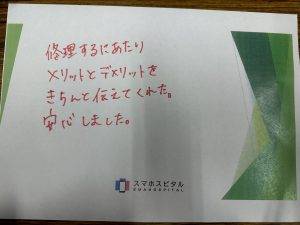 修理するにあたり
メリットとデメリットを
きちんと伝えてくれた。
安心しました。
スマホスピタル
SMAHOSPITAL